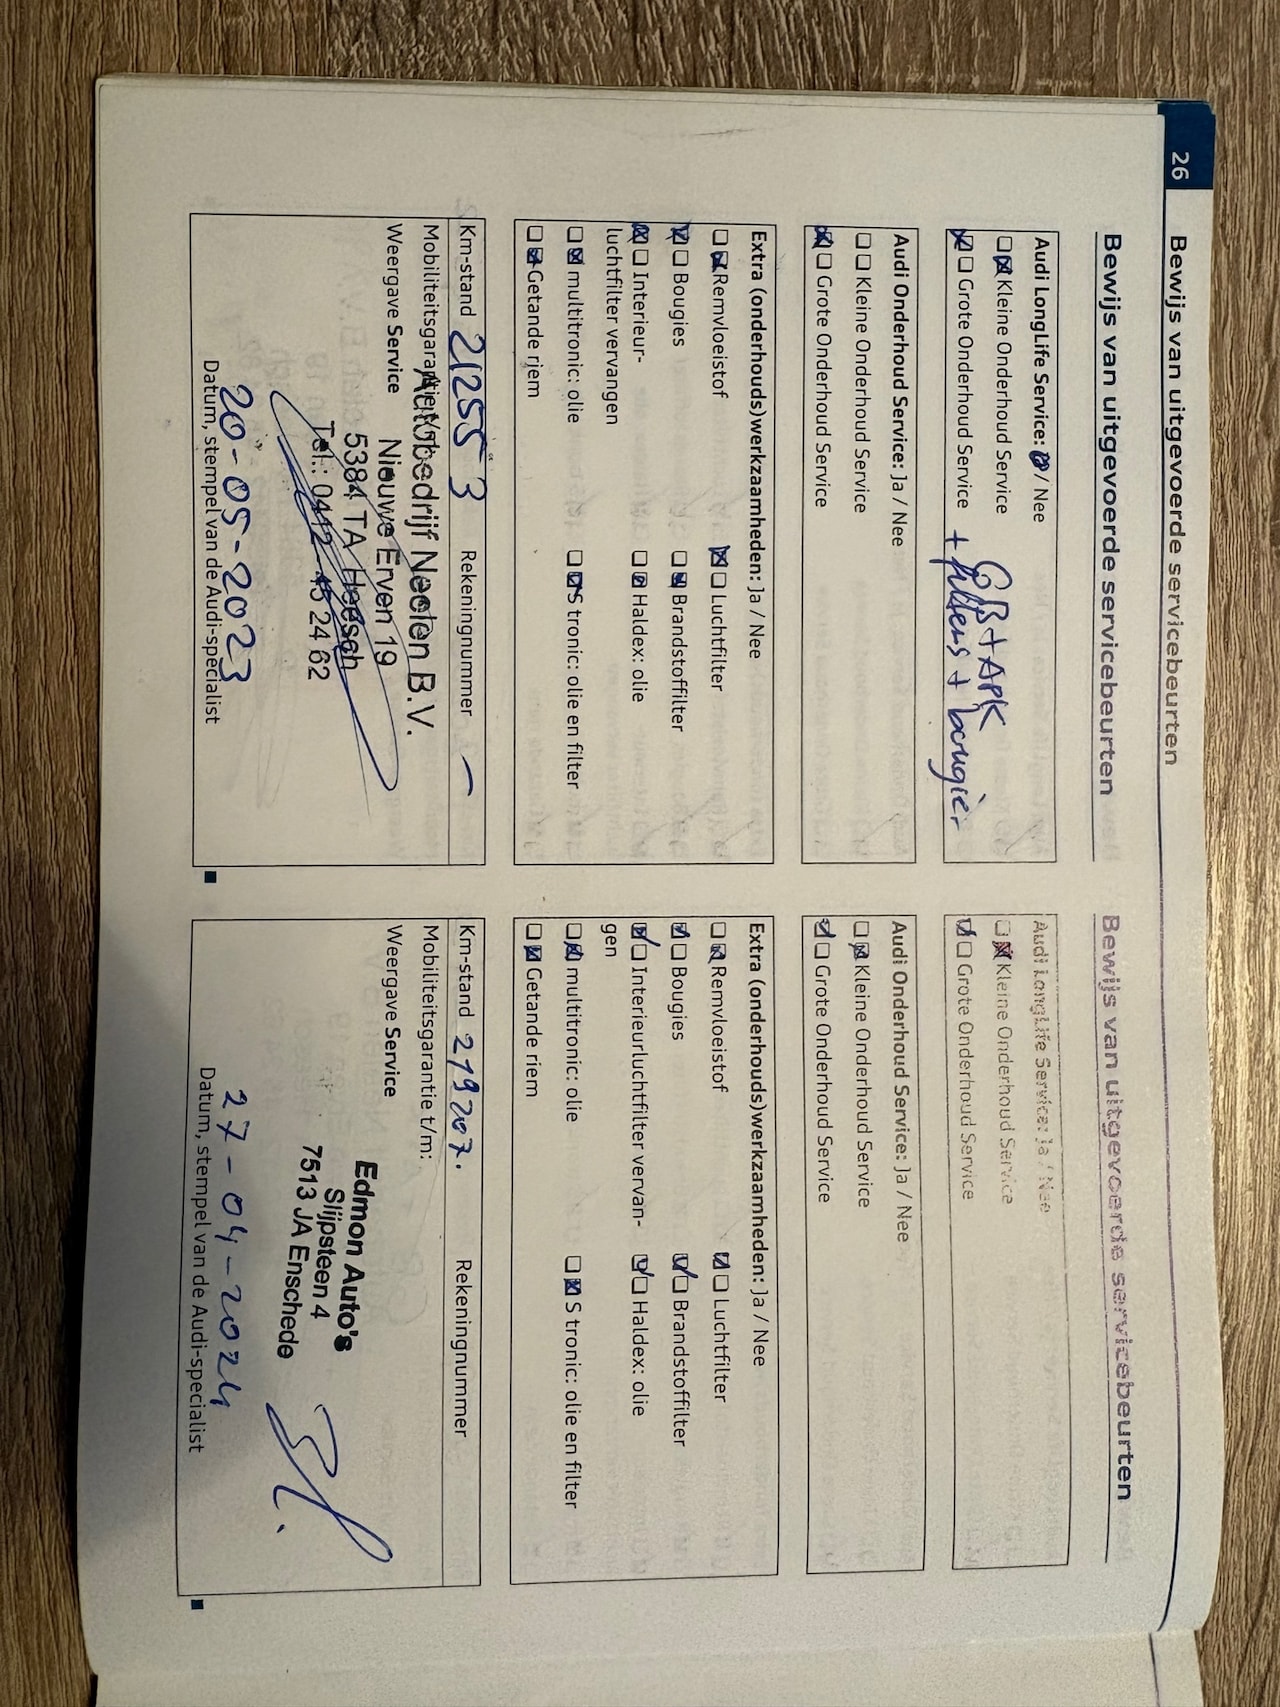 26
Bewijs van uitgevoerde servicebeurten
Bewijs van uitgevoerde servicebeurten
Audi LongLife Service: / Nee
Kleine Onderhoud Service
GB + APK
Grote Onderhoud Service
+ filters + bougiër
Audi Onderhoud Service: Ja / Nee
Kleine Onderhoud Service
Grote Onderhoud Service
Extra (onderhouds)werkzaamheden: Ja / Nee
Remvloeistof Luchtfilter
Bougies Brandstoffilter
Interieur- Haldex: olie
luchtfilter vervangen
multitronic: olie S tronic: olie en filter
Getande riem
Km-stand 212553 Rekeningnummer –
Mobiliteitsgarantie
Weergave Service
Autobedrijf Neelen B.V.
Nieuwe Erven 19
5384 TA Heesch
Tel.: 0412-45 24 62
20-05-2023
Datum, stempel van de Audi-specialist
Bewijs van uitgevoerde servicebeurten
Audi LongLife Service: Ja / Nee
Kleine Onderhoud Service
Grote Onderhoud Service
Audi Onderhoud Service: Ja / Nee
Kleine Onderhoud Service
Grote Onderhoud Service
Extra (onderhouds)werkzaamheden: Ja / Nee
Remvloeistof Luchtfilter
Bougies Brandstoffilter
Interieurluchtfilter vervan- Haldex: olie
gen
multitronic: olie S tronic: olie en filter
Getande riem
Km-stand 219207. Rekeningnummer
Mobiliteitsgarantie t/m:
Weergave Service
Edmon Auto's
Slijpsteen 4
7513 JA Enschede
27-04-2024
Datum, stempel van de Audi-specialist